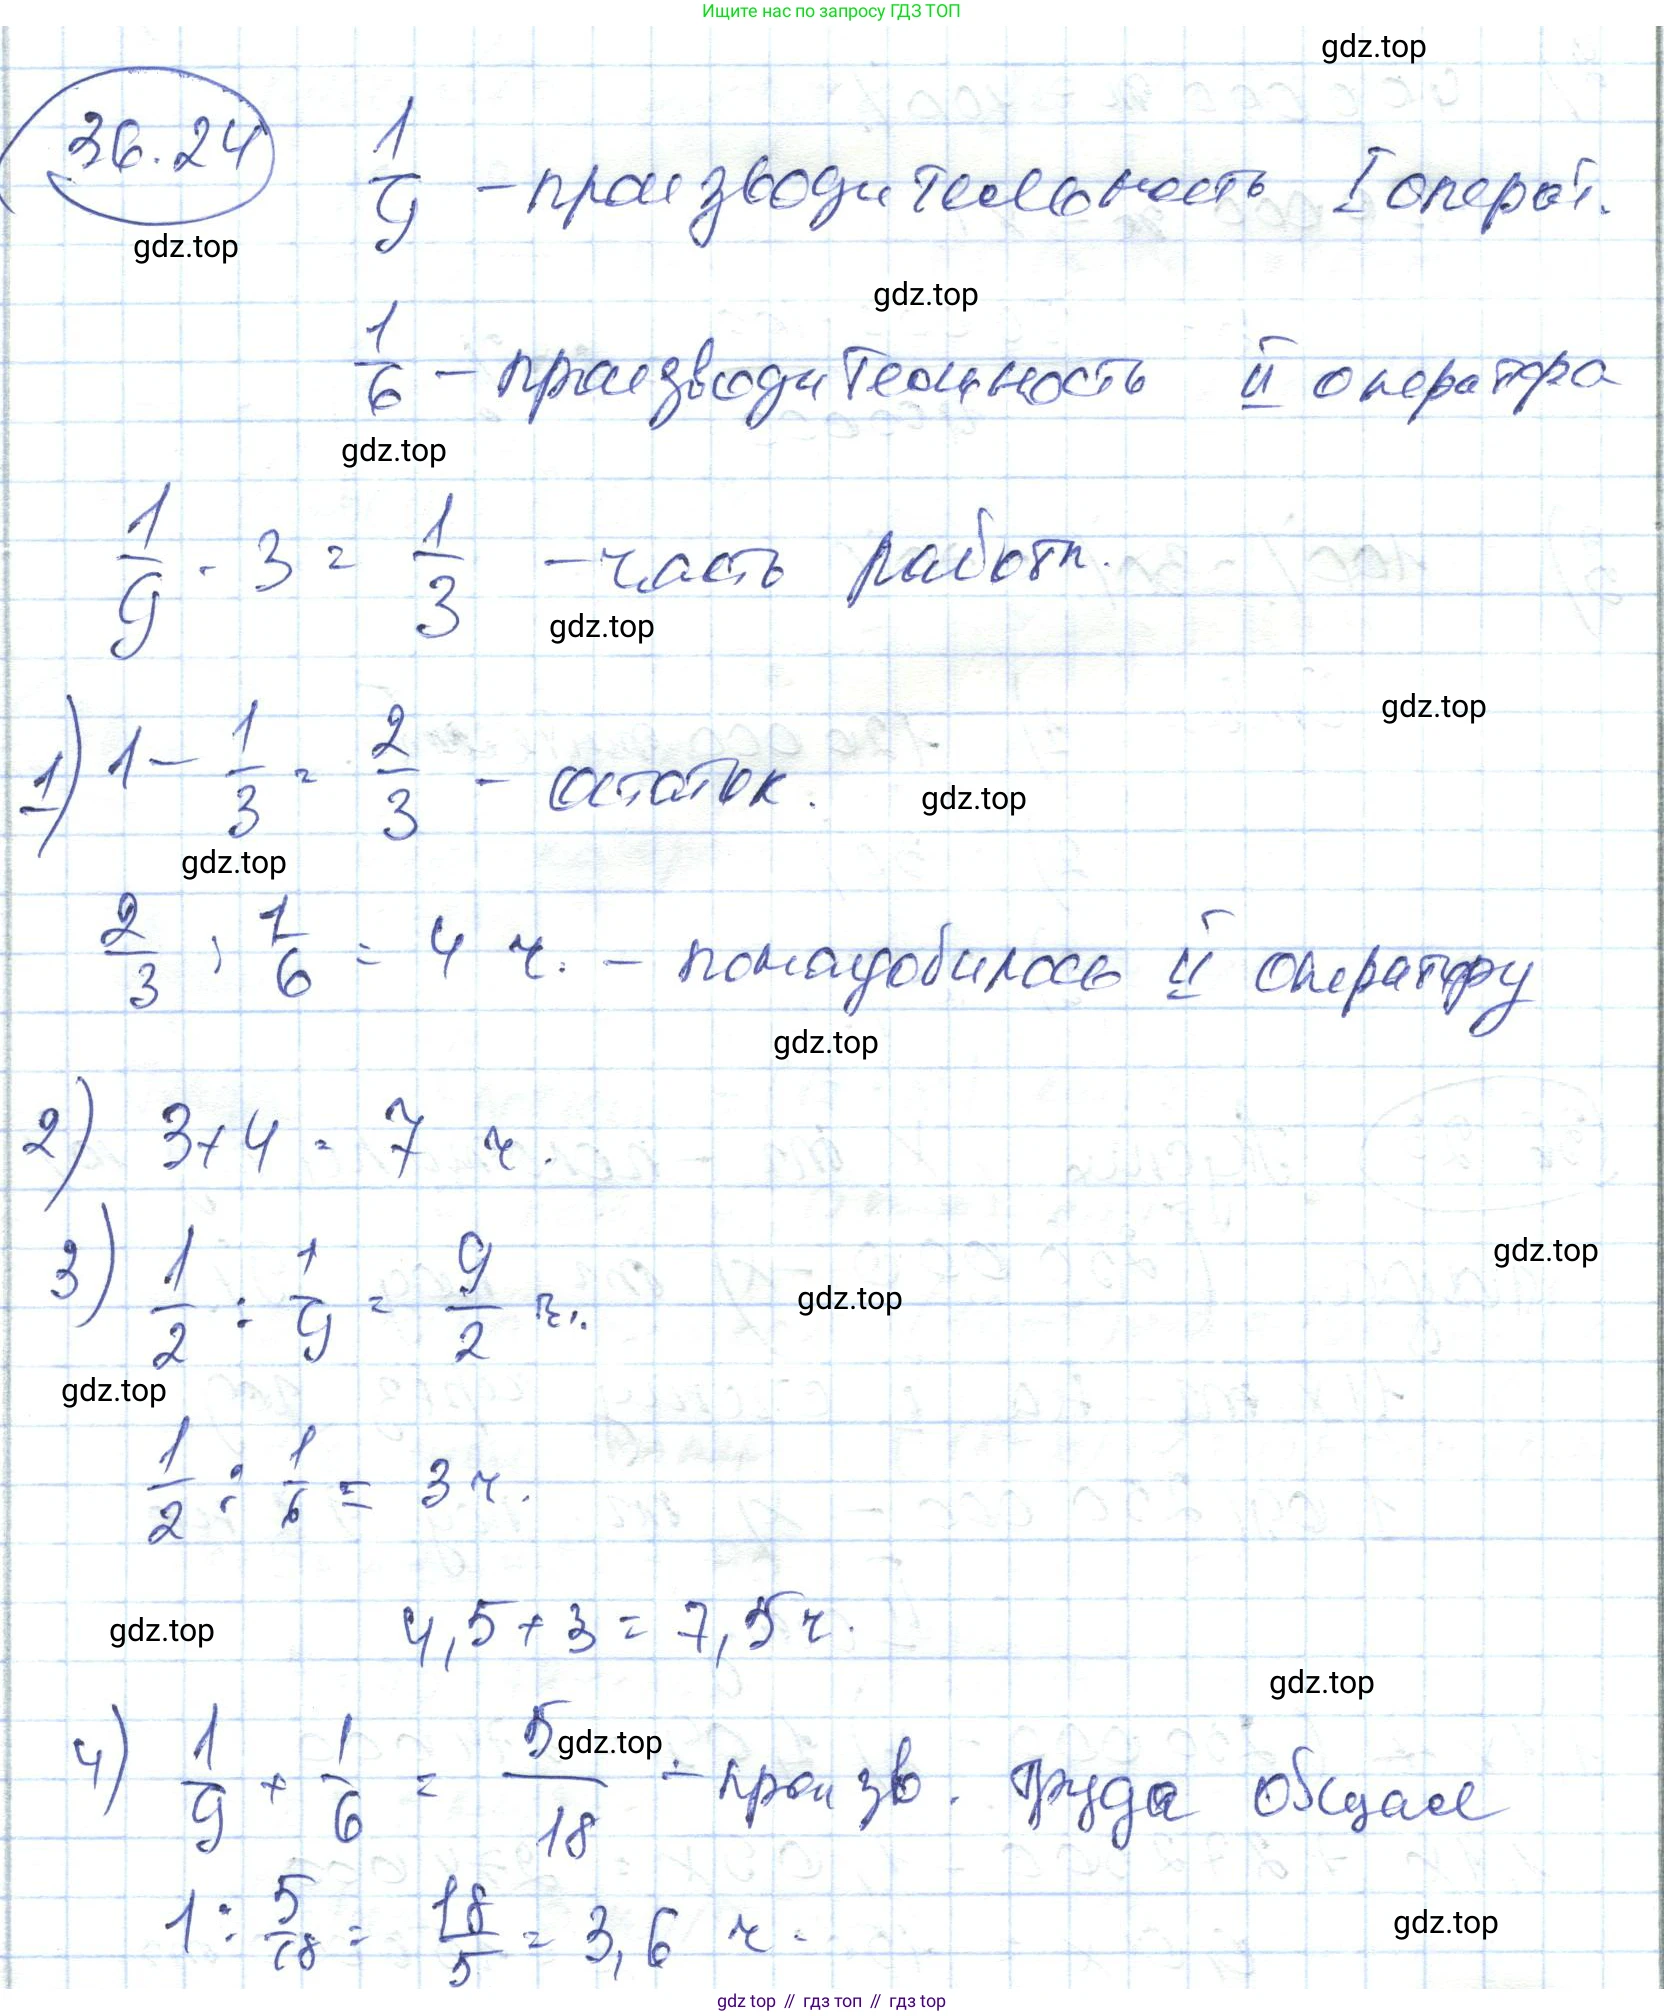 Ищите нас по запросу ГДЗ ТОП
gdz.top
36.24 1/9 – производительность I операт.
gdz.top
gdz.top
1/6 – производительность II оператора
gdz.top
1/9 · 3 = 1/3 – часть работы.
gdz.top
gdz.top
1) 1 – 1/3 = 2/3 – остаток.
gdz.top
gdz.top
2/3 : 1/6 = 4 ч. – понадобилось II оператору
gdz.top
2) 3+4 = 7 ч.
gdz.top
3) 1/2 : 1/9 = 9/2 ч.
gdz.top
gdz.top
1/2 : 1/6 = 3 ч.
4,5 + 3 = 7,5 ч.
gdz.top
gdz.top
4) 1/9 + 1/6 = 5/18 – произв. труда общая
gdz.top
1 : 5/18 = 18/5 = 3,6 ч.
gdz.top
gdz top // гдз топ // гдз top